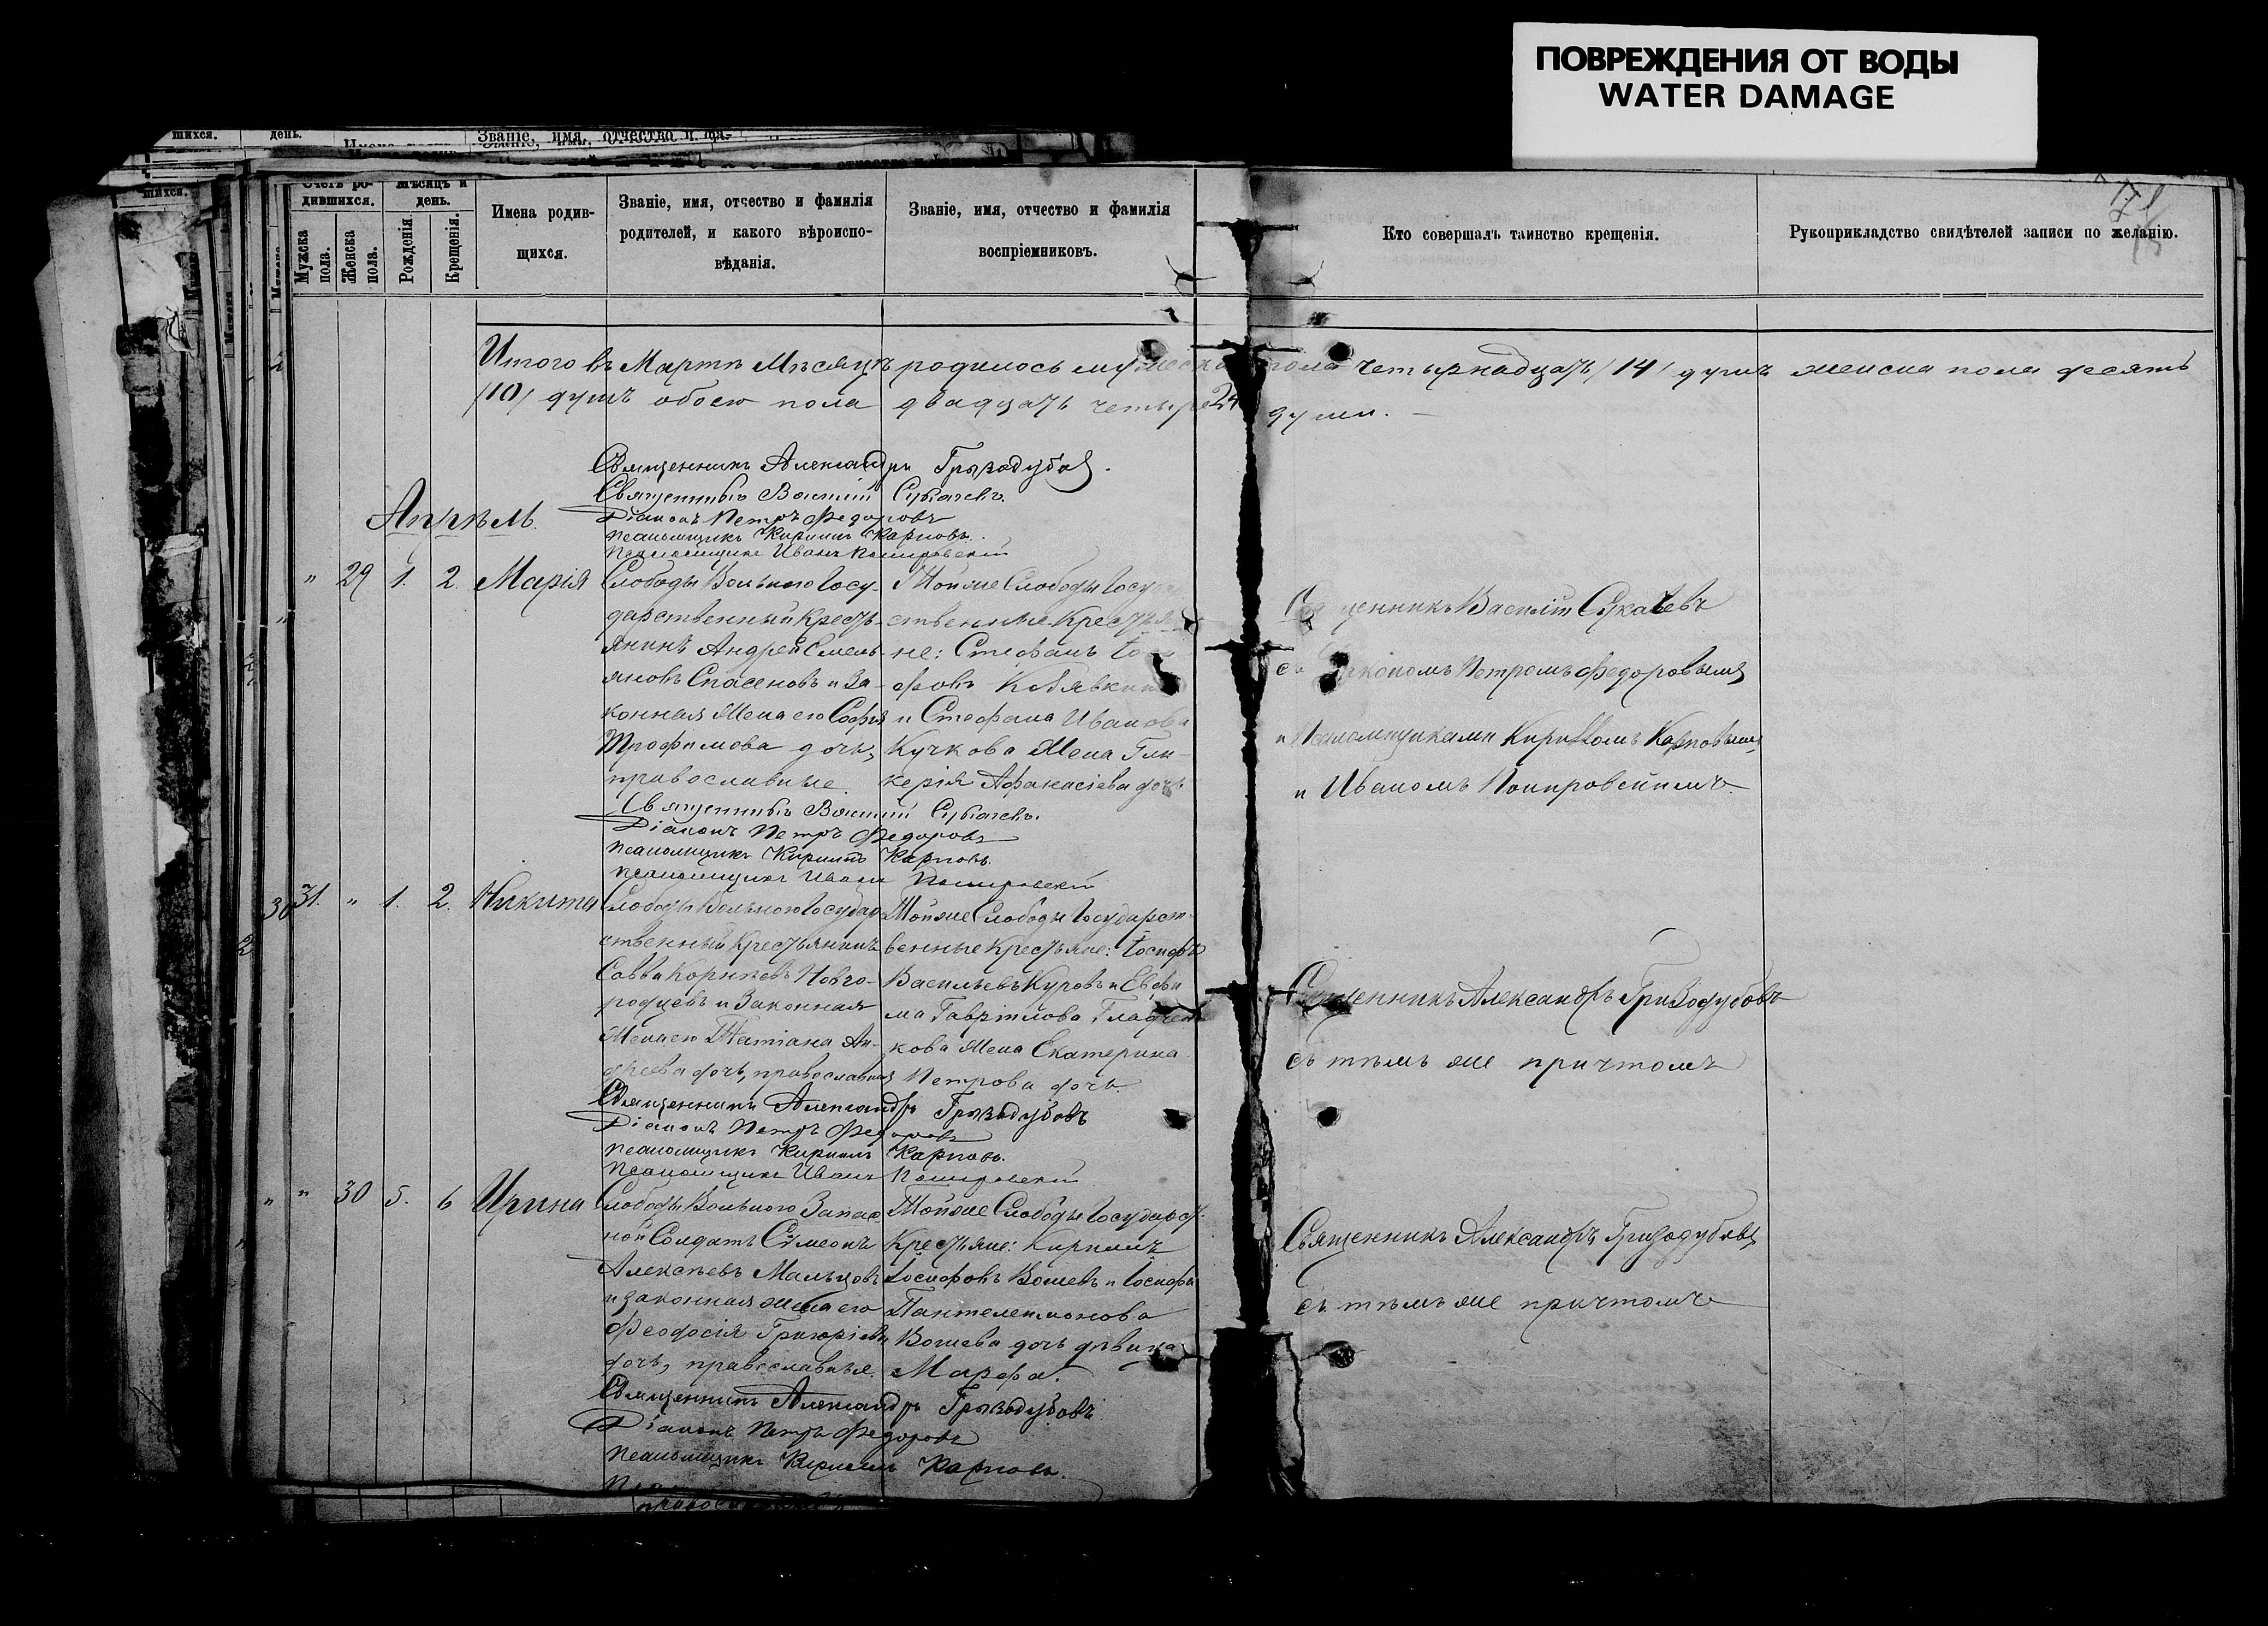 ПОВРЕЖДЕНИЯ ОТ ВОДЫ
WATER DAMAGE
шихся.
день.
Званіе, имя, отчество и фа-
Счетъ ро-
дившихся.
Мѣсяцъ и
день.
Мужска
пола.
Женска
пола.
Рожденія
Крещенія.
Имена родив-
щихся.
Званіе, имя, отчество и фамилія
родителей, и какого вѣроиспо-
вѣданія.
Званіе, имя, отчество и фамилія
воспріемниковъ.
Кто совершалъ таинство крещенія.
Рукоприкладство свидѣтелей записи по желанію.
Итого въ Мартѣ Мѣсяцѣ родилось мужеска пола четырнадцать /14/ душъ женска пола десять
/10/ душъ обоею пола двадцать четыре 24 души.
Священникъ Александръ Гризодубов
Священникъ Василій Сукачевъ.
Діаконъ Петръ Федоровъ
Псаломщикъ Кириллъ Карповъ.
Псаломщикъ Иванъ Покировскій
Апрѣль.
" 29 1. 2. Марія
Слободы Вольного Госу-
дарственный Кресть-
янинъ Андрей Емель-
яновъ Спасеновъ и За-
конная Жена его Софія
Трофимова дочь,
православные.
Тойже Слободы Госуда
ственные Крестья
не: Стефанъ
фовъ
и Стефана Иванова
Кучкова Жена Гли-
керія Афанасіева дочь
Священникъ Василій Сукачевъ
съ Діакономъ Петромъ Федоровымъ
и Псаломщиками Кирилломъ Карповымъ
и Иваномъ Покировскимъ
Священникъ Василій Сукачевъ.
Діаконъ Петръ Федоровъ
Псаломщикъ Кириллъ Карповъ.
Псаломщикъ Иванъ Покировскій
31. " 1. 2. Никита
Слободы Вольного Государ
ственный Крестьянинъ
Савва Корнѣевъ Новго-
родцевъ и Законная
Жена его Татіана Ан-
дреева дочь, православныя
Тойже Слободы Государст-
венные Крестьяне: Іосифъ
Васильевъ Куровъ и Евфи
ма Гаврілова
кова Жена Екатерина
Петрова дочь
Священникъ Александръ Гризодубовъ
съ тѣмъ же причтомъ
Священникъ Александръ Гризодубовъ
Діаконъ Петръ Федоровъ
Псаломщикъ Кириллъ Карповъ.
Псаломщикъ Иванъ Покировскій
" 30 5. 6 Ирина
Слободы Вольного Запас
ной Солдатъ Сѵмеонъ
Алексѣевъ Мальцовъ
и законная жена его
Феодосія Григоріева
дочь, православныя.
Тойже Слободы Государст.
Крестьяне: Кириллъ
Іосифовъ Вошевъ и Іосифа
Пантелеимонова
Вошева дочь дѣвица
Марфа.
Священникъ Александръ Гризодубовъ
съ тѣмъ же причтомъ
Священникъ Александръ Гризодубовъ
Діаконъ Петръ Федоровъ
Псаломщикъ Кириллъ Карповъ.